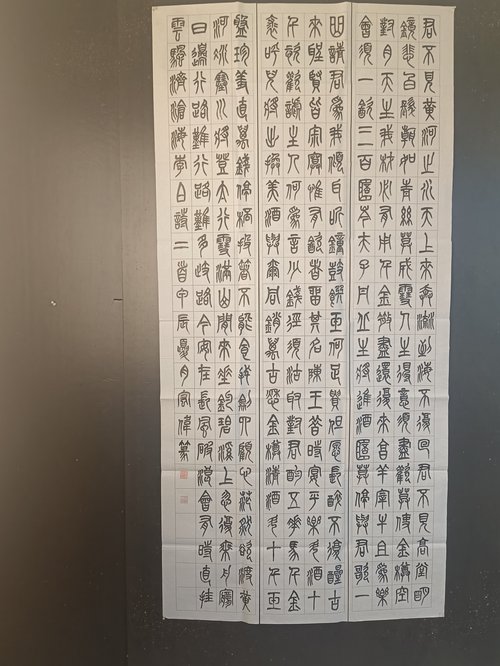 君不見黃河之水天上來奔流到海不復回君不見高堂明
鏡悲白髮朝如青絲莫成雪人生得意須盡歡莫使金樽空
對月天生我材必有用千金散盡還復來烹羊宰牛且為樂
會須一飲三百杯岑夫子丹丘生將進酒杯莫停與君歌一
曲請君為我傾耳聽鐘鼓饌玉何足貴但願長醉不復醒古
來聖賢皆寂寞惟有飲者留其名陳王昔時宴平樂斗酒十
千恣歡謔主人何為言少錢徑須沽取對君酌五花馬千金
裘呼兒將出換美酒與爾同銷萬古愁金樽清酒斗十千玉
盤珍羞直萬錢停杯投箸不能食拔劍四顧心茫然欲渡黃
河冰塞川將登太行雪滿山閒來垂釣碧溪上忽復乘舟夢
日邊行路難行路難多歧路今安在長風破浪會有時直掛
雲颿濟滄海李白詩二首甲辰夏月宮偉篆